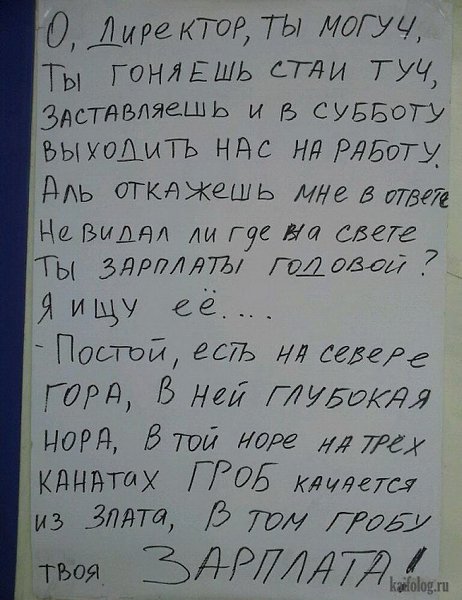 О, Директор, ты могуч,
Ты гоняешь стаи туч,
Заставляешь и в субботу
выходить нас на работу.
Аль откажешь мне в ответе
Не видал ли где на свете
Ты зарплаты годовой?
Я ищу её....
- Постой, есть на севере
гора, в ней глубокая
нора, в той норе на трёх
канатах ГРОБ качается
из злата, в том гробу
твоя ЗАРПЛАТА!
kaifolog.ru